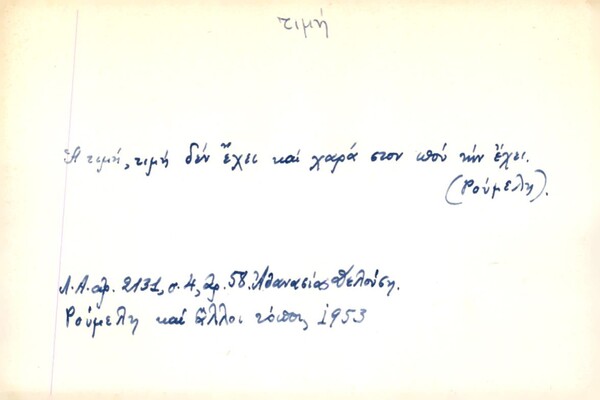 τιμή
Ἡ τιμή, τιμή δέν ἔχει καί χαρά στον πού τήν ἔχει.
(Ρούμελη).
Λ.Α. ἀρ. 2131, σ. 4, ἀρ. 58. Ἀθανασίας
Ρούμελη καί ἄλλοι τόποι, 1953